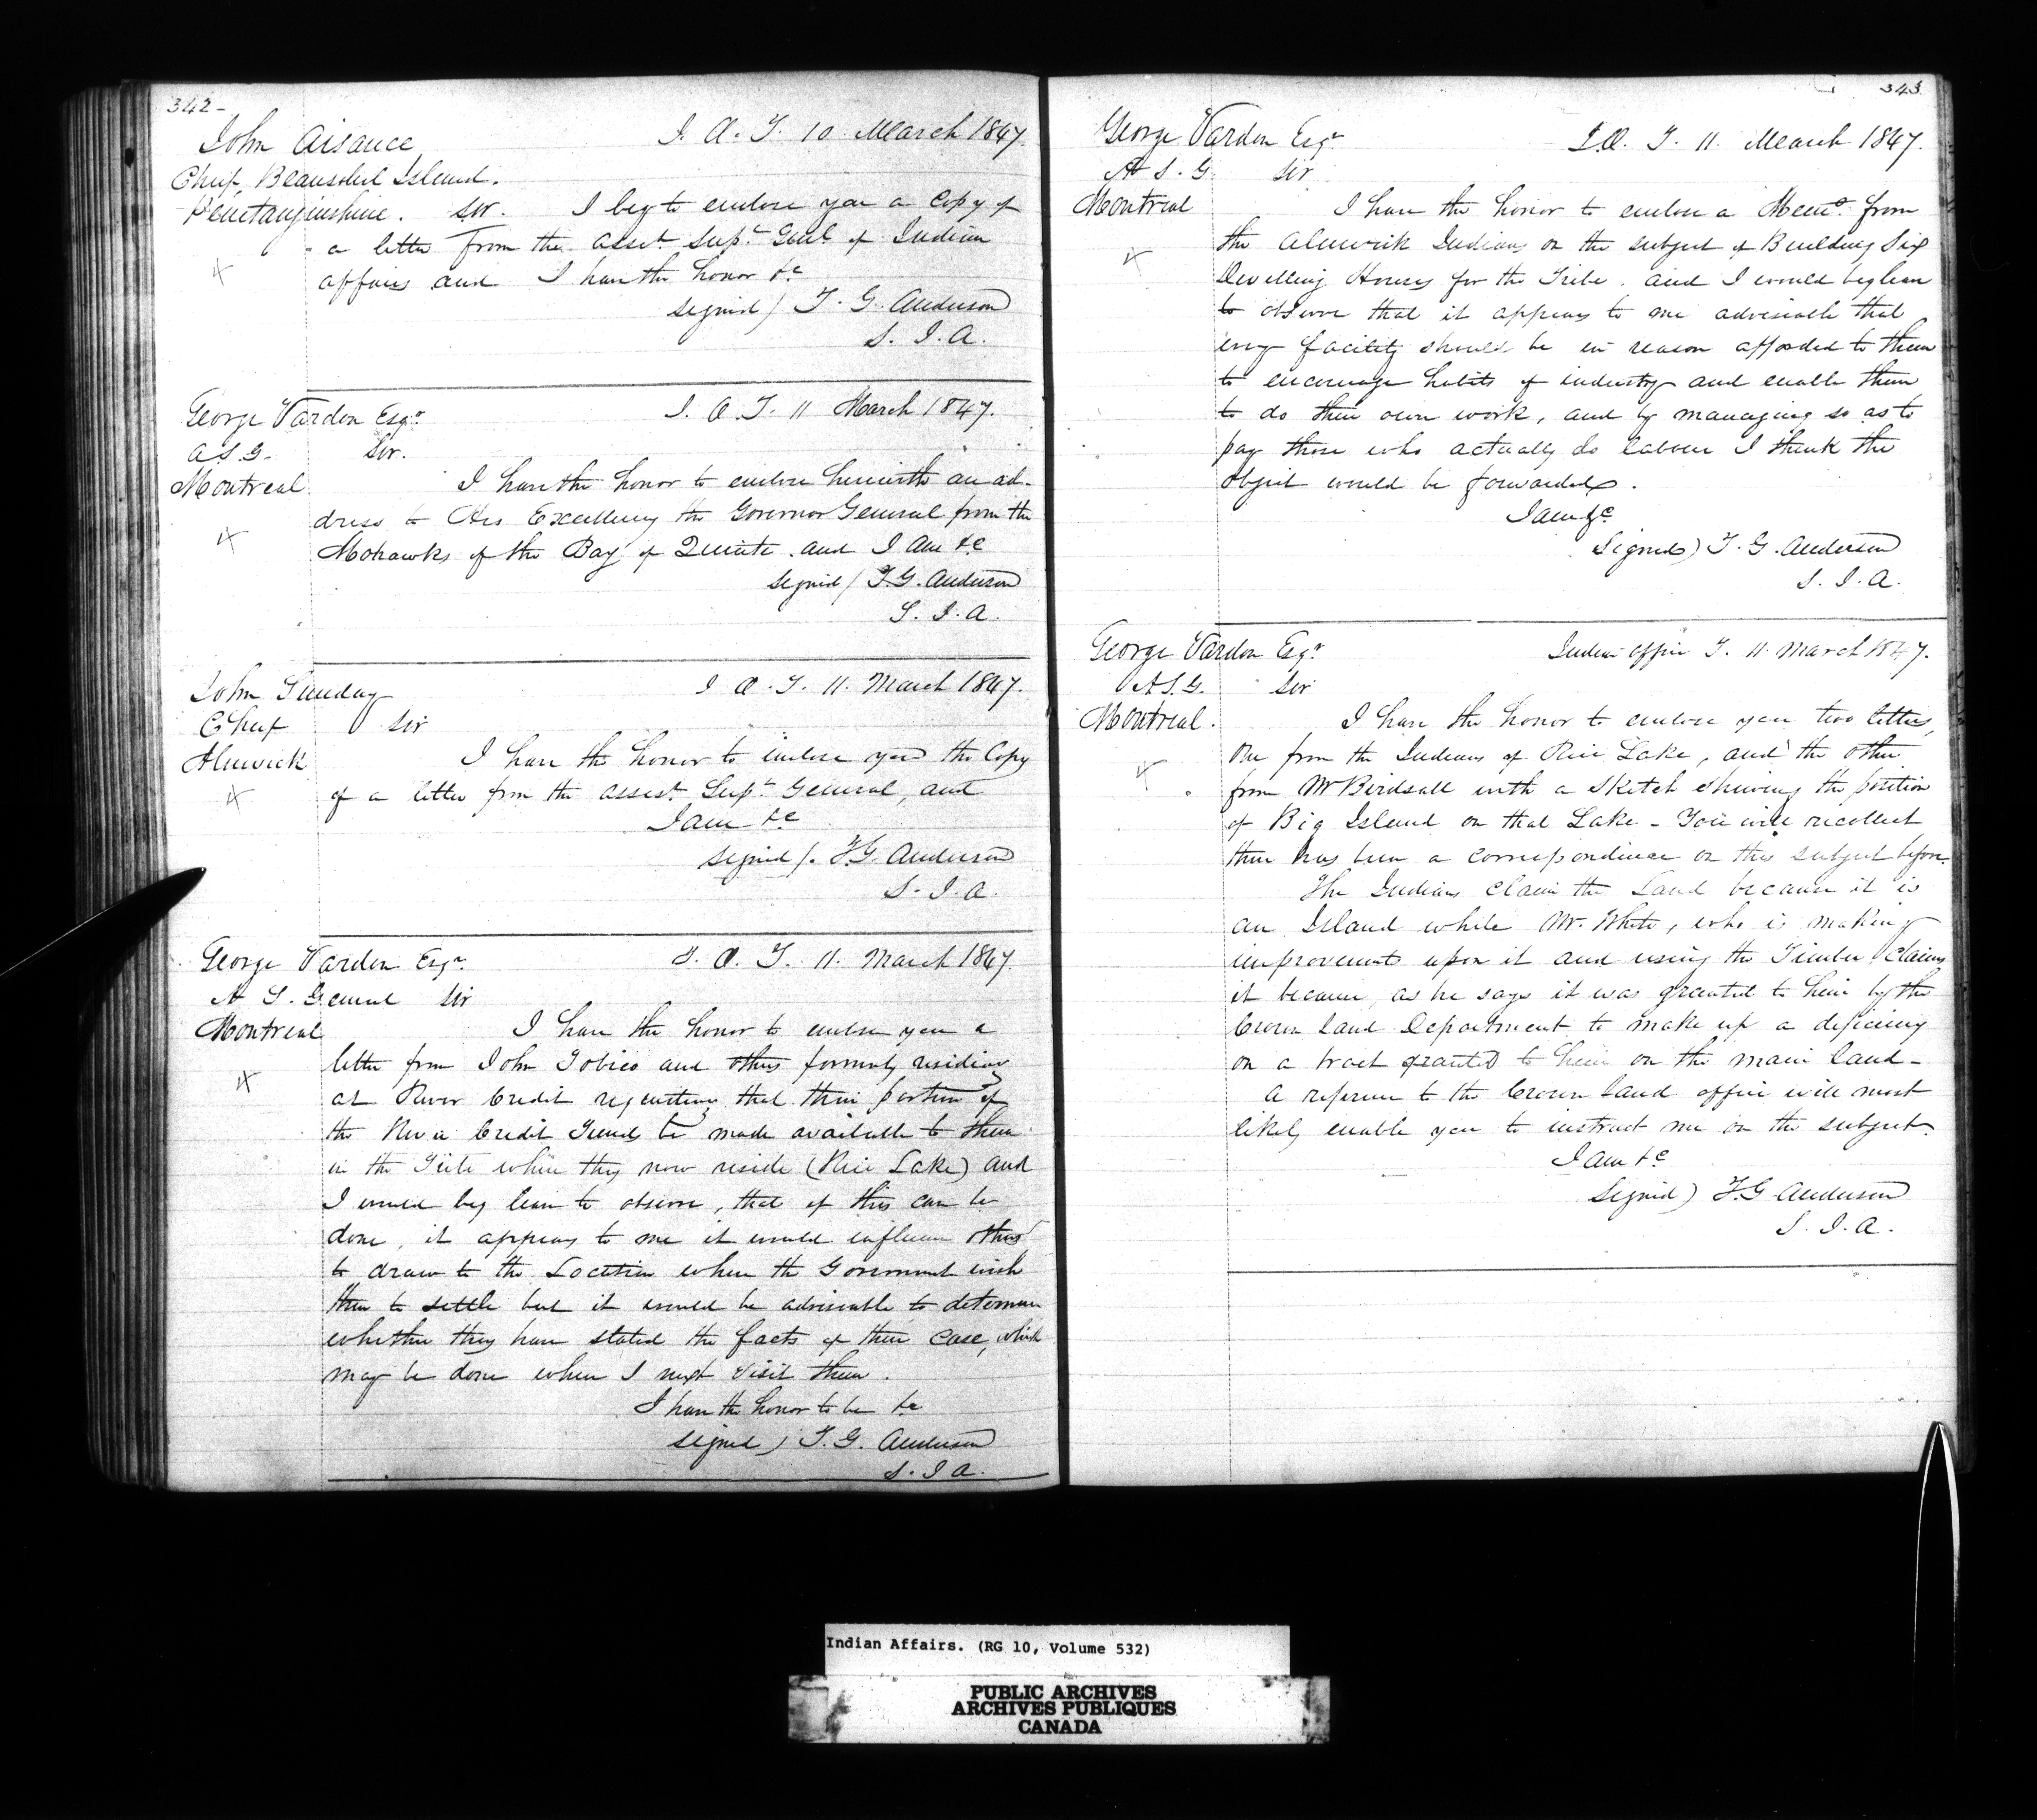 342-
John Aisance
I. O. T. 10 March 1847.
Chief, Beausoliel Island.
Penetanguishine. Sir. I beg to enclose you a Copy of
a letter from the Assist. Supt. Genl. of Indian
affairs and I have the honor &c
signed / T. G. Anderson
S. I. A.
George Vardon Esqr.
I. O. T. 11 March 1847.
A S. G. Sir.
Montreal
I have the honor to enclose herewith an ad-
dress to His Excellency the Governor General from the
Mohawks of the Bay of Quinte and I am &c
signed / T. G. Anderson
S. I. A.
John Sunday
I O. T. 11. March 1847.
Chief Sir
Alnwick
I have the honor to enclose you the Copy
of a letter from the Assist. Supt. General, and
I am &c
signed /. T. G. Anderson
S. I. A.
George Vardon Esqr.
I. O. T. 11. March 1847.
A S. General Sir
Montreal
I have the honor to enclose you a
letter from John Tobico and others formerly residing
at River Credit requesting that their portion of
the River Credit Funds be made available to them
in the where they now reside (Rice Lake) and
I would beg leave to observe, that if this can be
done, it appears to me it would influence others
to draw to the Location where the Government wish
them to settle but it would be adviseable to determine
whether they have stated the facts of their case, which
may be done when I next visit them.
I have the honor to be &c
signed ) T. G. Anderson
S. I A.
343
George Vardon Esqr.
I.O. T. 11. March 1847.
A S. G. Sir
Montreal
I have the honor to enclose a Memo. from
the Alnwick Indians on the subject of Building Six
Dwelling Houses for the Tribe. and I would beg leave
to observe that it appears to me adviseable that
every facility should be in reason afforded to them
to encourage habits of industry and enable them
to do their own work, and by managing so as to
pay those who actually do labour I think the
object would be forwarded.
I am &c
Signed) T. G. Anderson
S. I. A.
George Vardon Esqr.
Indian Office T. 11. March 1847.
A S. G. Sir
Montreal.
I have the honor to enclose you two letters,
One from the Indians of Rice Lake, and the other
from Mr Birdsall with a Sketch shewing the position
of Big Island on that Lake - You will recollect
there has been a correspondence on this subject before.
The Indians Claim the Land because it is
an Island while Mr. White, who is making
improvements upon it and using the Timber Claims
it because, as he says it was granted to him by the
Crown Land Department to make up a deficiency
on a tract granted to him on the main land -
A reference to the Crown Land office will most
likely enable you to instruct me on the subject.
I am &c
Signed) T. G Anderson
S. I. A.
Indian Affairs. (RG 10, Volume 532)
PUBLIC ARCHIVES
ARCHIVES PUBLIQUES
CANADA